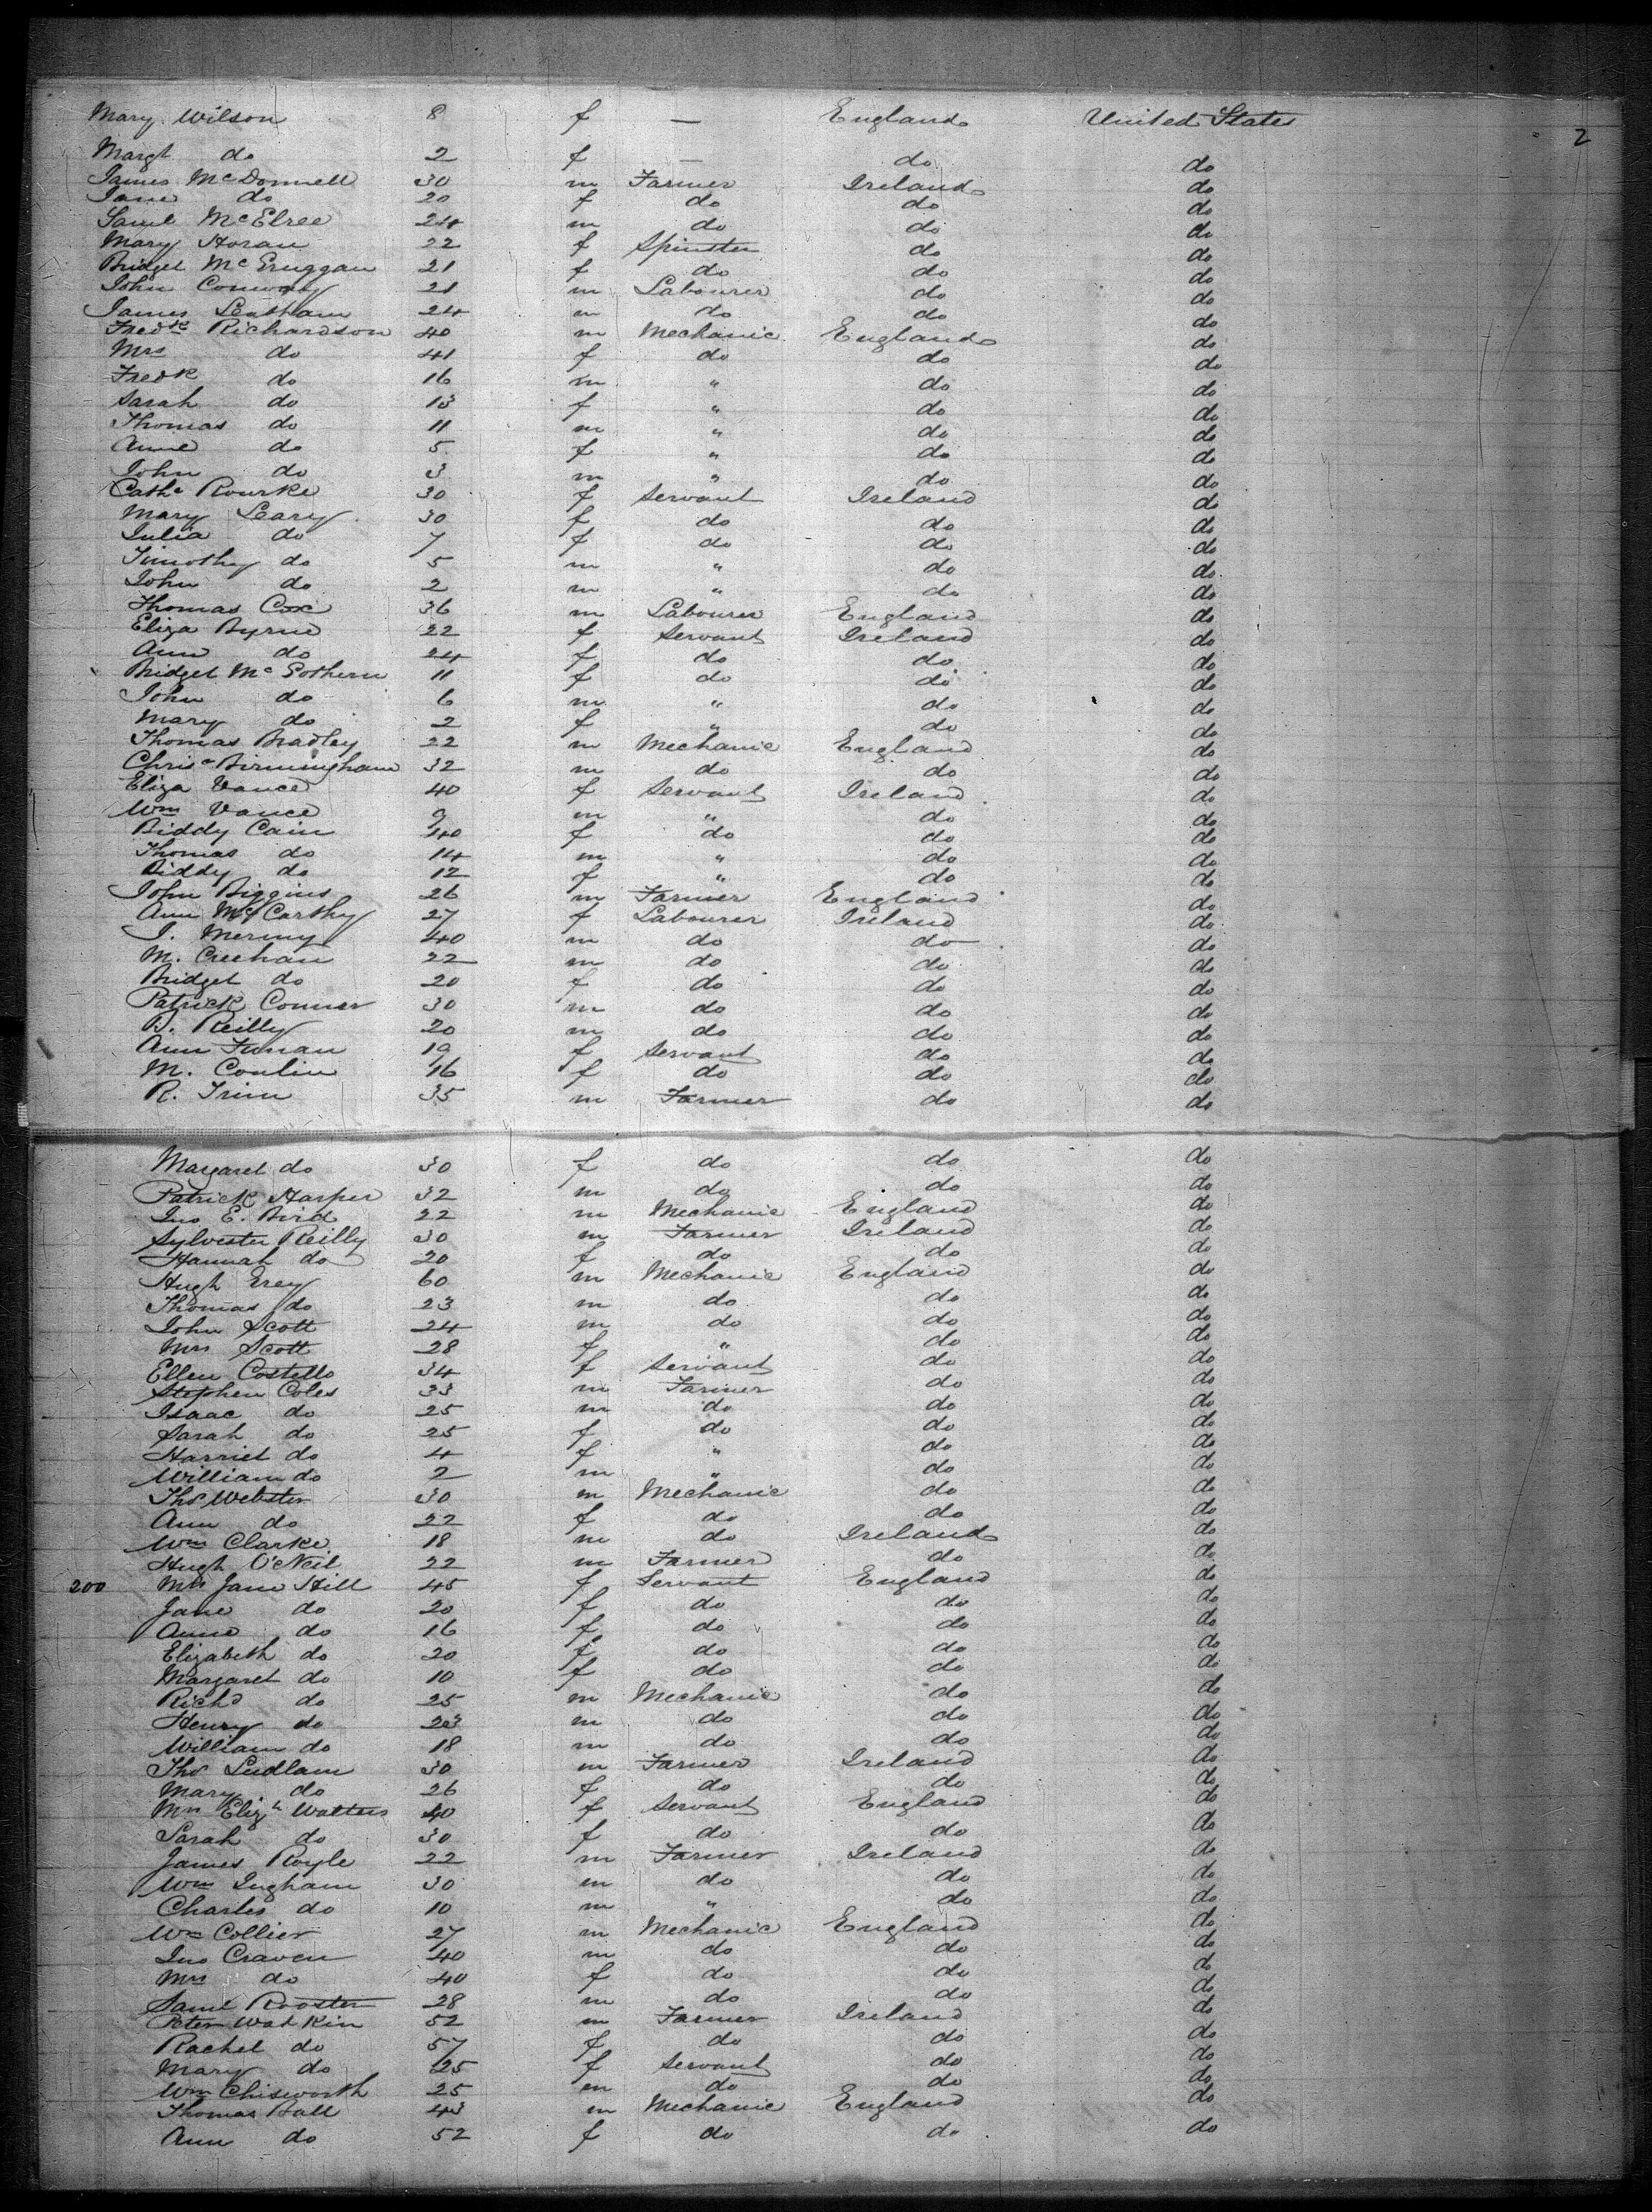 2
Mary Wilson 8 f — England United States
Margt do 2 f — do do
James McDonnell 30 m Farmer Ireland do
Jane do 20 f do do do
Saml McElree 24 m do do do
Mary Horan 22 f Spinster do do
Bridget McGruggan 21 f do do do
John Conway 21 m Labourer do do
James Leatham 24 m do do do
Fredk Richardson 40 m Mechanic England do
Mrs do 41 f do do do
Fredk do 16 m " do do
Sarah do 13 f " do do
Thomas do 11 m " do do
Anne do 5 f " do do
John do 3 m " do do
Cathe Rourke 30 f Servant Ireland do
Mary Leary 30 f do do do
Julia do 7 f do do do
Timothy do 5 m " do do
John do 2 m " do do
Thomas Cox 36 m Labourer England do
Eliza Byrne 22 f Servant Ireland do
Ann do 24 f do do do
Bridget McGothern 11 f do do do
John do 6 m " do do
Mary do 2 f " do do
Thomas Bradley 22 m Mechanic England do
Chrisr Birmingham 32 m do do do
Eliza Vance 40 f Servant Ireland do
Wm Vance 9 m " do do
Biddy Cain 40 f do do do
Thomas do 14 m " do do
Biddy do 12 f " do do
John Biggins 26 m Farmer England do
Ann McCarthy 27 f Labourer Ireland do
J. 40 m do do do
M. Creehan 22 m do do do
Bridget do 20 f do do do
Patrick Conner 30 m do do do
B. Reilly 20 m do do do
Ann 19 f Servant do do
M. Conlin 16 f do do do
R. Trim 35 m Farmer do do
Margaret do 30 f do do do
Patrick Harper 32 m do do do
Jno E. Bird 22 m Mechanic England do
Sylvester Reilly 30 m Farmer Ireland do
Hannah do 20 f do do do
Hugh Grey 60 m Mechanic England do
Thomas do 23 m do do do
John Scott 24 m do do do
Mrs Scott 28 f " do do
Ellen Costello 34 f Servant do do
Stephen Coles 33 m Farmer do do
Isaac do 25 m do do do
Sarah do 25 f do do do
Harriet do 4 f " do do
William do 2 m " do do
Thos Webster 30 m Mechanic do do
Ann do 22 f do do do
Wm Clarke 18 m do Ireland do
Hugh O'Neil 22 m Farmer do do
200 Mrs Jane Hill 45 f Servant England do
Jane do 20 f do do do
Anne do 16 f do do do
Elizabeth do 20 f do do do
Margaret do 10 f do do do
Richd do 25 m Mechanic do do
Henry do 23 m do do do
William do 18 m do do do
Thos Ludlam 30 m Farmer Ireland do
Mary do 26 f do do do
Mrs Elizh Watters 40 f Servant England do
Sarah do 30 f do do do
James Royle 22 m Farmer Ireland do
Wm Ingham 30 m do do do
Charles do 10 m " do do
Wm Collier 27 m Mechanic England do
Jno Craven 40 m do do do
Mrs do 40 f do do do
Saml Rooster 28 m do do do
Peter Watkin 52 m Farmer Ireland do
Rachel do 57 f do do do
Mary do 25 f Servant do do
Wm Chisworth 25 m do do do
Thomas Ball 43 m Mechanic England do
Ann do 52 f do do do